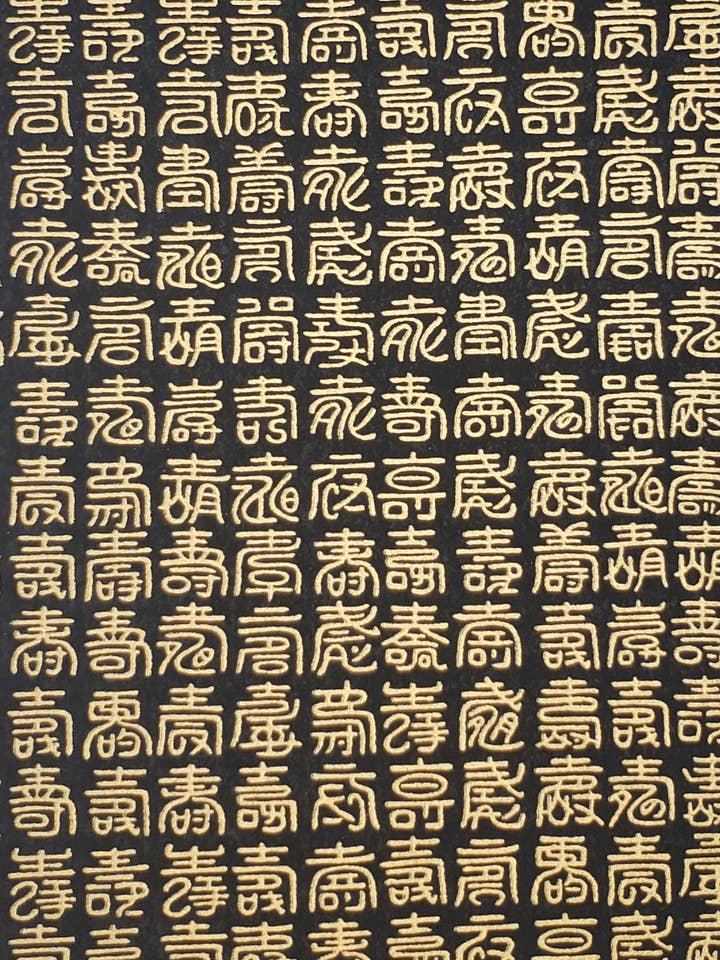 壽壽壽壽壽壽壽壽壽壽
壽壽壽壽壽壽壽壽壽壽
壽壽壽壽壽壽壽壽壽壽
壽壽壽壽壽壽壽壽壽壽
壽壽壽壽壽壽壽壽壽壽
壽壽壽壽壽壽壽壽壽壽
壽壽壽壽壽壽壽壽壽壽
壽壽壽壽壽壽壽壽壽壽
壽壽壽壽壽壽壽壽壽壽
壽壽壽壽壽壽壽壽壽壽
壽壽壽壽壽壽壽壽壽壽
壽壽壽壽壽壽壽壽壽壽